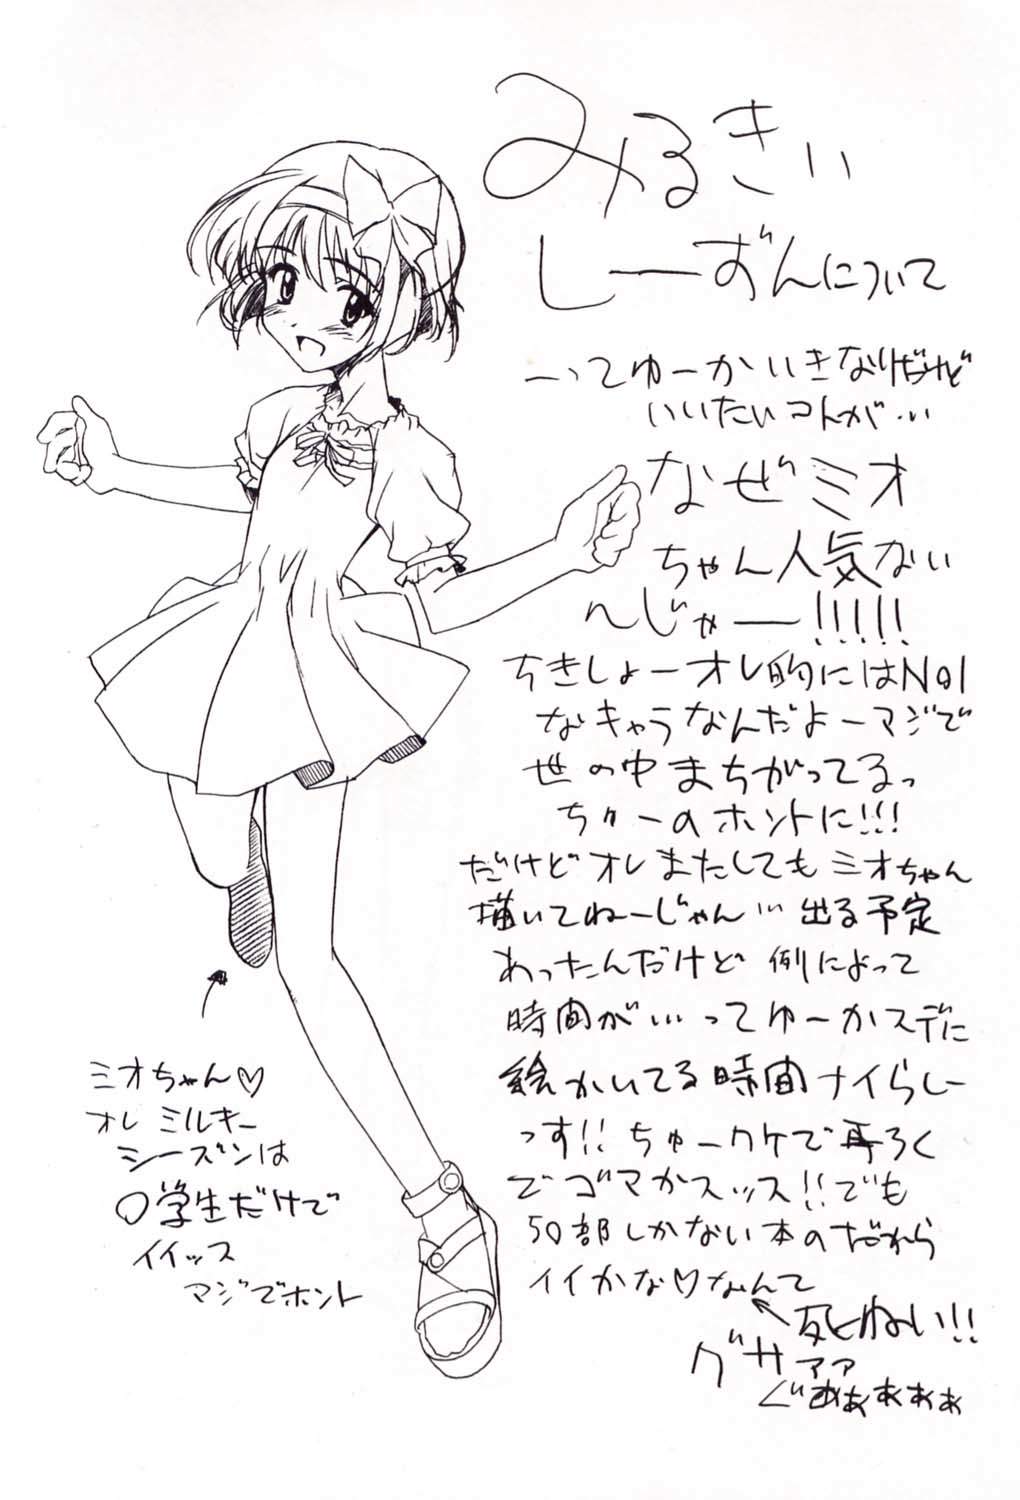 みるきぃ
しーずんについて
―ってゆーかいきなりだけど
いいたいコトが…
なぜミオ
ちゃん人気ない
んじゃー!!!!!
ちきしょーオレ的にはNo1
なキャラなんだよーマジで
世の中まちがってるっ
ちゅーのホントに!!!
だけどオレまたしてもミオちゃん
描いてねーじゃん… 出る予定
あったんだけど 例によって
時間が…ってゆーかスデに
絵かいてる時間ナイらしー
っす!! ちゅーワケで再ろく
でゴマかスッス!! でも
50部しかない本のだから
イイかな♡なんて
死ねい!!
グサァァ
ぐああぁぁぁ
ミオちゃん♡
オレ ミルキー
シーズンは
〇学生だけで
イイッス
マジでホント